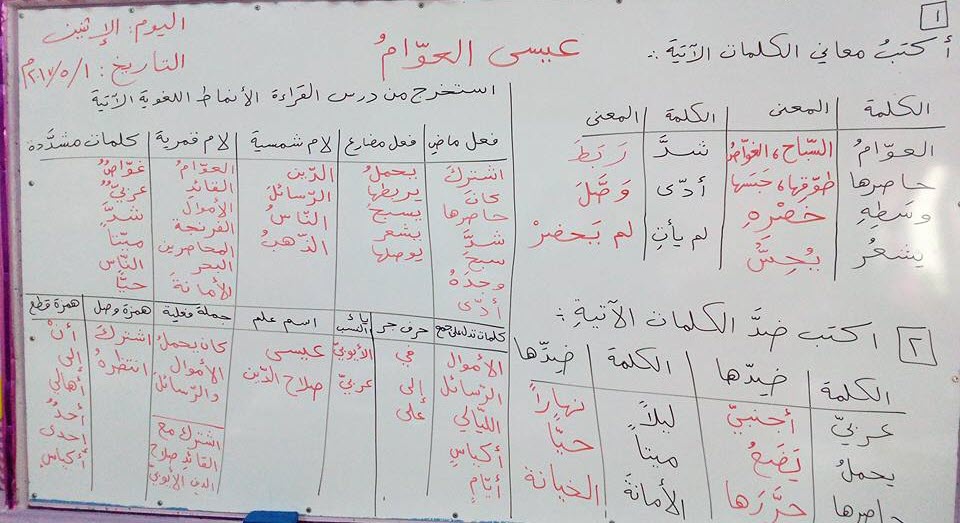 اليوم: الإثنين
التاريخ: ٢٠١٧/٥/١م
عيسى العوّامُ
١
أكتبُ معاني الكلمات الآتية:
الكلمة المعنى الكلمة المعنى
العوّامُ السّباح، الغوّاصُ شدَّ رَبَطَ
حاصرها طوّقها، حَبَسَها أدّى وَصَّلَ
وسَطِهِ خَصْرِهِ لم يأتِ لم يَحضرْ
يشعُر يُحِسُّ
٢
اكتب ضدَّ الكلمات الآتيةِ:
الكلمة ضِدّها الكلمة ضِدّها
عربيّ أجنبيّ ليلاً نهاراً
يحملُ يَضَعُ ميتا حيًّا
حاصرها حرَّرَها الأمانة الخيانة
استخرج من درس القراءة الأنماط اللغوية الآتية
فعل ماضٍ فعل مضارع لام شمسية لام قمرية كلمات مشدّدة
اشتركَ يحملُ الدّين العوّامُ غوّاصٌ
كانَ يربطها الرّسائلَ القائد عربيٌّ
حاصرها يسبحَ النّاسُ الأموالَ شدَّ
شدَّ يشعر الذّهبُ الفرنجة ميتًا
سبحَ يوصلها المحاصرين النّاس
وجدهُ البحر حيًّا
أدّى الأمانةَ
كلمات تدل على جمع حرف جر ياء النسب اسم علم جملة فعلية همزة وصل همزة قطع
الأموال في الأيوبيّ عيسى كان يحملُ اشتركَ أنْ
الرّسائل إلى عربيّ صلاح الدّين الأموالَ انتظرهُ إلى
اللّيالي على والرّسائلَ أهالي
أكياسٍ اشترك مع أحدُ
أيّامٍ القائدِ صلاح إحدى
الدين الأيوبيّ أكياسِ